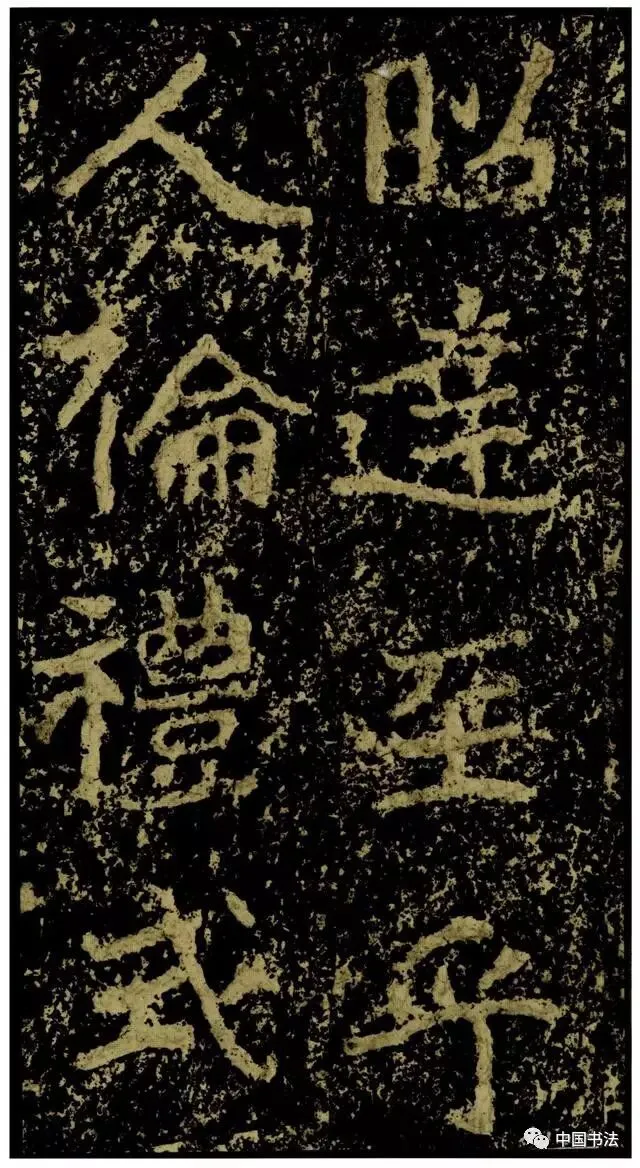 昭達至乎
人倫禮式
中国书法